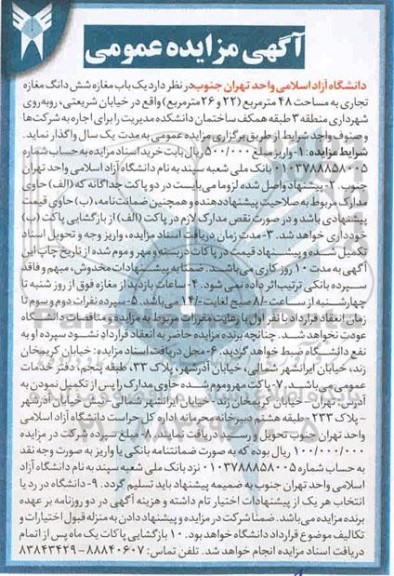 آگهی مزایده عمومی
دانشگاه آزاد اسلامی واحد تهران جنوب در نظر دارد یک باب مغازه شش دانگ مغازه
تجاری به مساحت ۴۸ مترمربع (۲۲ و ۲۶ مترمربع) واقع در خیابان شریعتی، روبه‌روی
شهرداری منطقه ۳ طبقه همکف ساختمان دانشکده مدیریت را برای اجاره به شرکت‌ها
و صنوف واجد شرایط از طریق برگزاری مزایده عمومی به مدت یک سال واگذار نماید.
شرایط مزایده: ۱- واریز مبلغ ۵۰۰/۰۰۰ ریال بابت خرید اسناد مزایده به حساب شماره
۰۱۰۳۷۸۸۸۵۸۰۰۵ بانک ملی شعبه سپند به نام دانشگاه آزاد اسلامی واحد تهران
جنوب. ۲- پیشنهاد واصل شده لزوما می‌بایست در دو پاکت جداگانه که (الف) حاوی
مدارک مربوط به صلاحیت پیشنهاددهنده و همچنین ضمانت‌نامه، (ب) حاوی قیمت
پیشنهادی باشد و در صورت نقص مدارک لازم در پاکت (الف) از بازگشایی پاکت (ب)
خودداری خواهد شد. ۳- مدت زمان دریافت اسناد مزایده، واریز وجه و تحویل اسناد
تکمیل شده و پیشنهاد قیمت در پاکات دربسته و مهر و موم شده از تاریخ چاپ این
آگهی به مدت ۱۰ روز کاری می‌باشد. ضمنا به پیشنهادات مخدوش، مبهم و فاقد
سپرده بانکی ترتیب اثر داده نمی شود. ۴- ساعات بازدید از مغازه فوق از روز شنبه تا
چهارشنبه از ساعت ۸/- صبح لغایت ۱۲/- می‌باشد. ۵- سپرده نفرات دوم و سوم تا
زمان انعقاد قرارداد با نفر اول با رعایت مقررات مربوط به مزایده و مناقصات دانشگاه
عودت نخواهد شد. چنانچه برنده مزایده حاضر به انعقاد قرارداد نشود سپرده او به
نفع دانشگاه ضبط خواهد گردید. ۶- محل دریافت اسناد مزایده: خیابان کریمخان
زند، خیابان ایرانشهر شمالی، خیابان آذرشهر، پلاک ۳۳، طبقه پنجم، دفتر خدمات
عمومی می‌باشد. ۷- پاکت مهر و موم شده حاوی مدارک را پس از تکمیل نمودن به
آدرس: تهران - خیابان کریمخان زند - خیابان ایرانشهر شمالی - نبش خیابان آذرشهر
- پلاک ۲۳۳ - طبقه هشتم - دبیرخانه محرمانه اداره کل حراست دانشگاه آزاد اسلامی
واحد تهران جنوب تحویل و رسید دریافت نمایند. ۸- مبلغ سپرده شرکت در مزایده
۱۰۰/۰۰۰/۰۰۰ ریال بوده که به صورت ضمانتنامه بانکی یا واریز به صورت وجه نقد
به حساب شماره ۰۱۰۳۷۸۸۸۵۸۰۰۵ نزد بانک ملی شعبه سپند به نام دانشگاه آزاد
اسلامی واحد تهران جنوب به ضمیمه پیشنهاد باید تسلیم گردد. ۹- دانشگاه در رد یا
انتخاب هر یک از پیشنهادات اختیار تام داشته و هزینه آگهی در دو روزنامه بر عهده
برنده مزایده می‌باشد. ضمنا شرکت در مزایده و پیشنهاد دادن به منزله قبول اختیارات و
تکالیف موضوع قرارداد دانشگاه خواهد بود. ۱۰ بازگشایی پاکات یک ماه پس از اتمام
دریافت اسناد مزایده انجام خواهد شد. تلفن تماس: ۸۸۸۴۰۶۰۷-۸۳۸۴۳۴۲۹